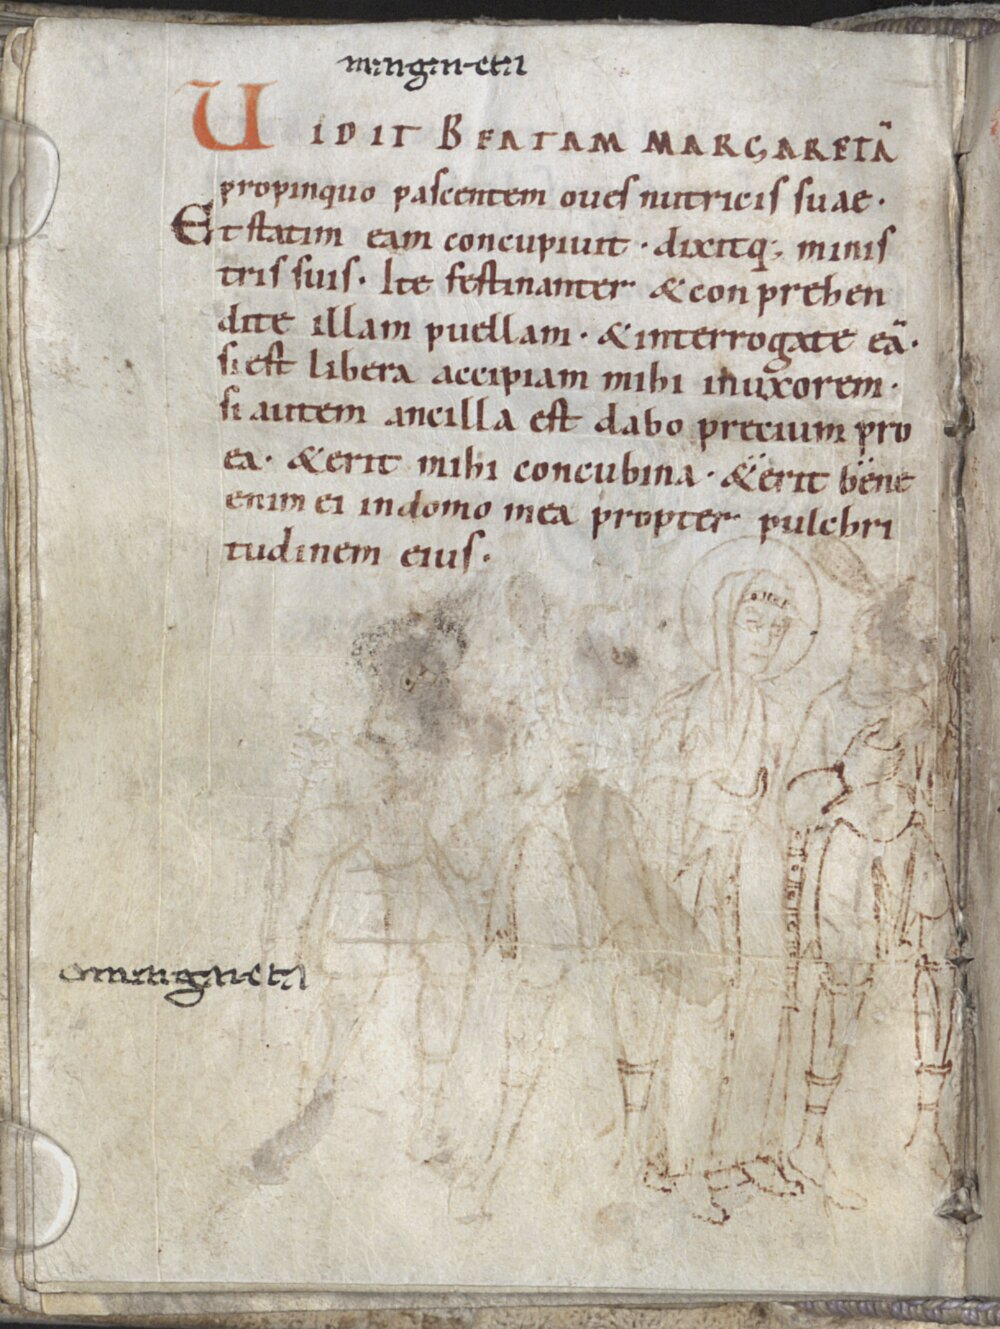 margareta
UIDIT BEATAM MARGARETĀ
propinquo pascentem oues nutricis suae ·
Et statim eam concupiuit · dixitq; minis
tris suis · Ite festinanter & conprehen
dite illam puellam · & interrogate eā ·
si est libera accipiam mihi inuxorem ·
si autem ancilla est dabo precium pro
ea · & erit mihi concubina · & erit bene
enim ei indomo mea propter pulchri
tudinem eius ·
margareta